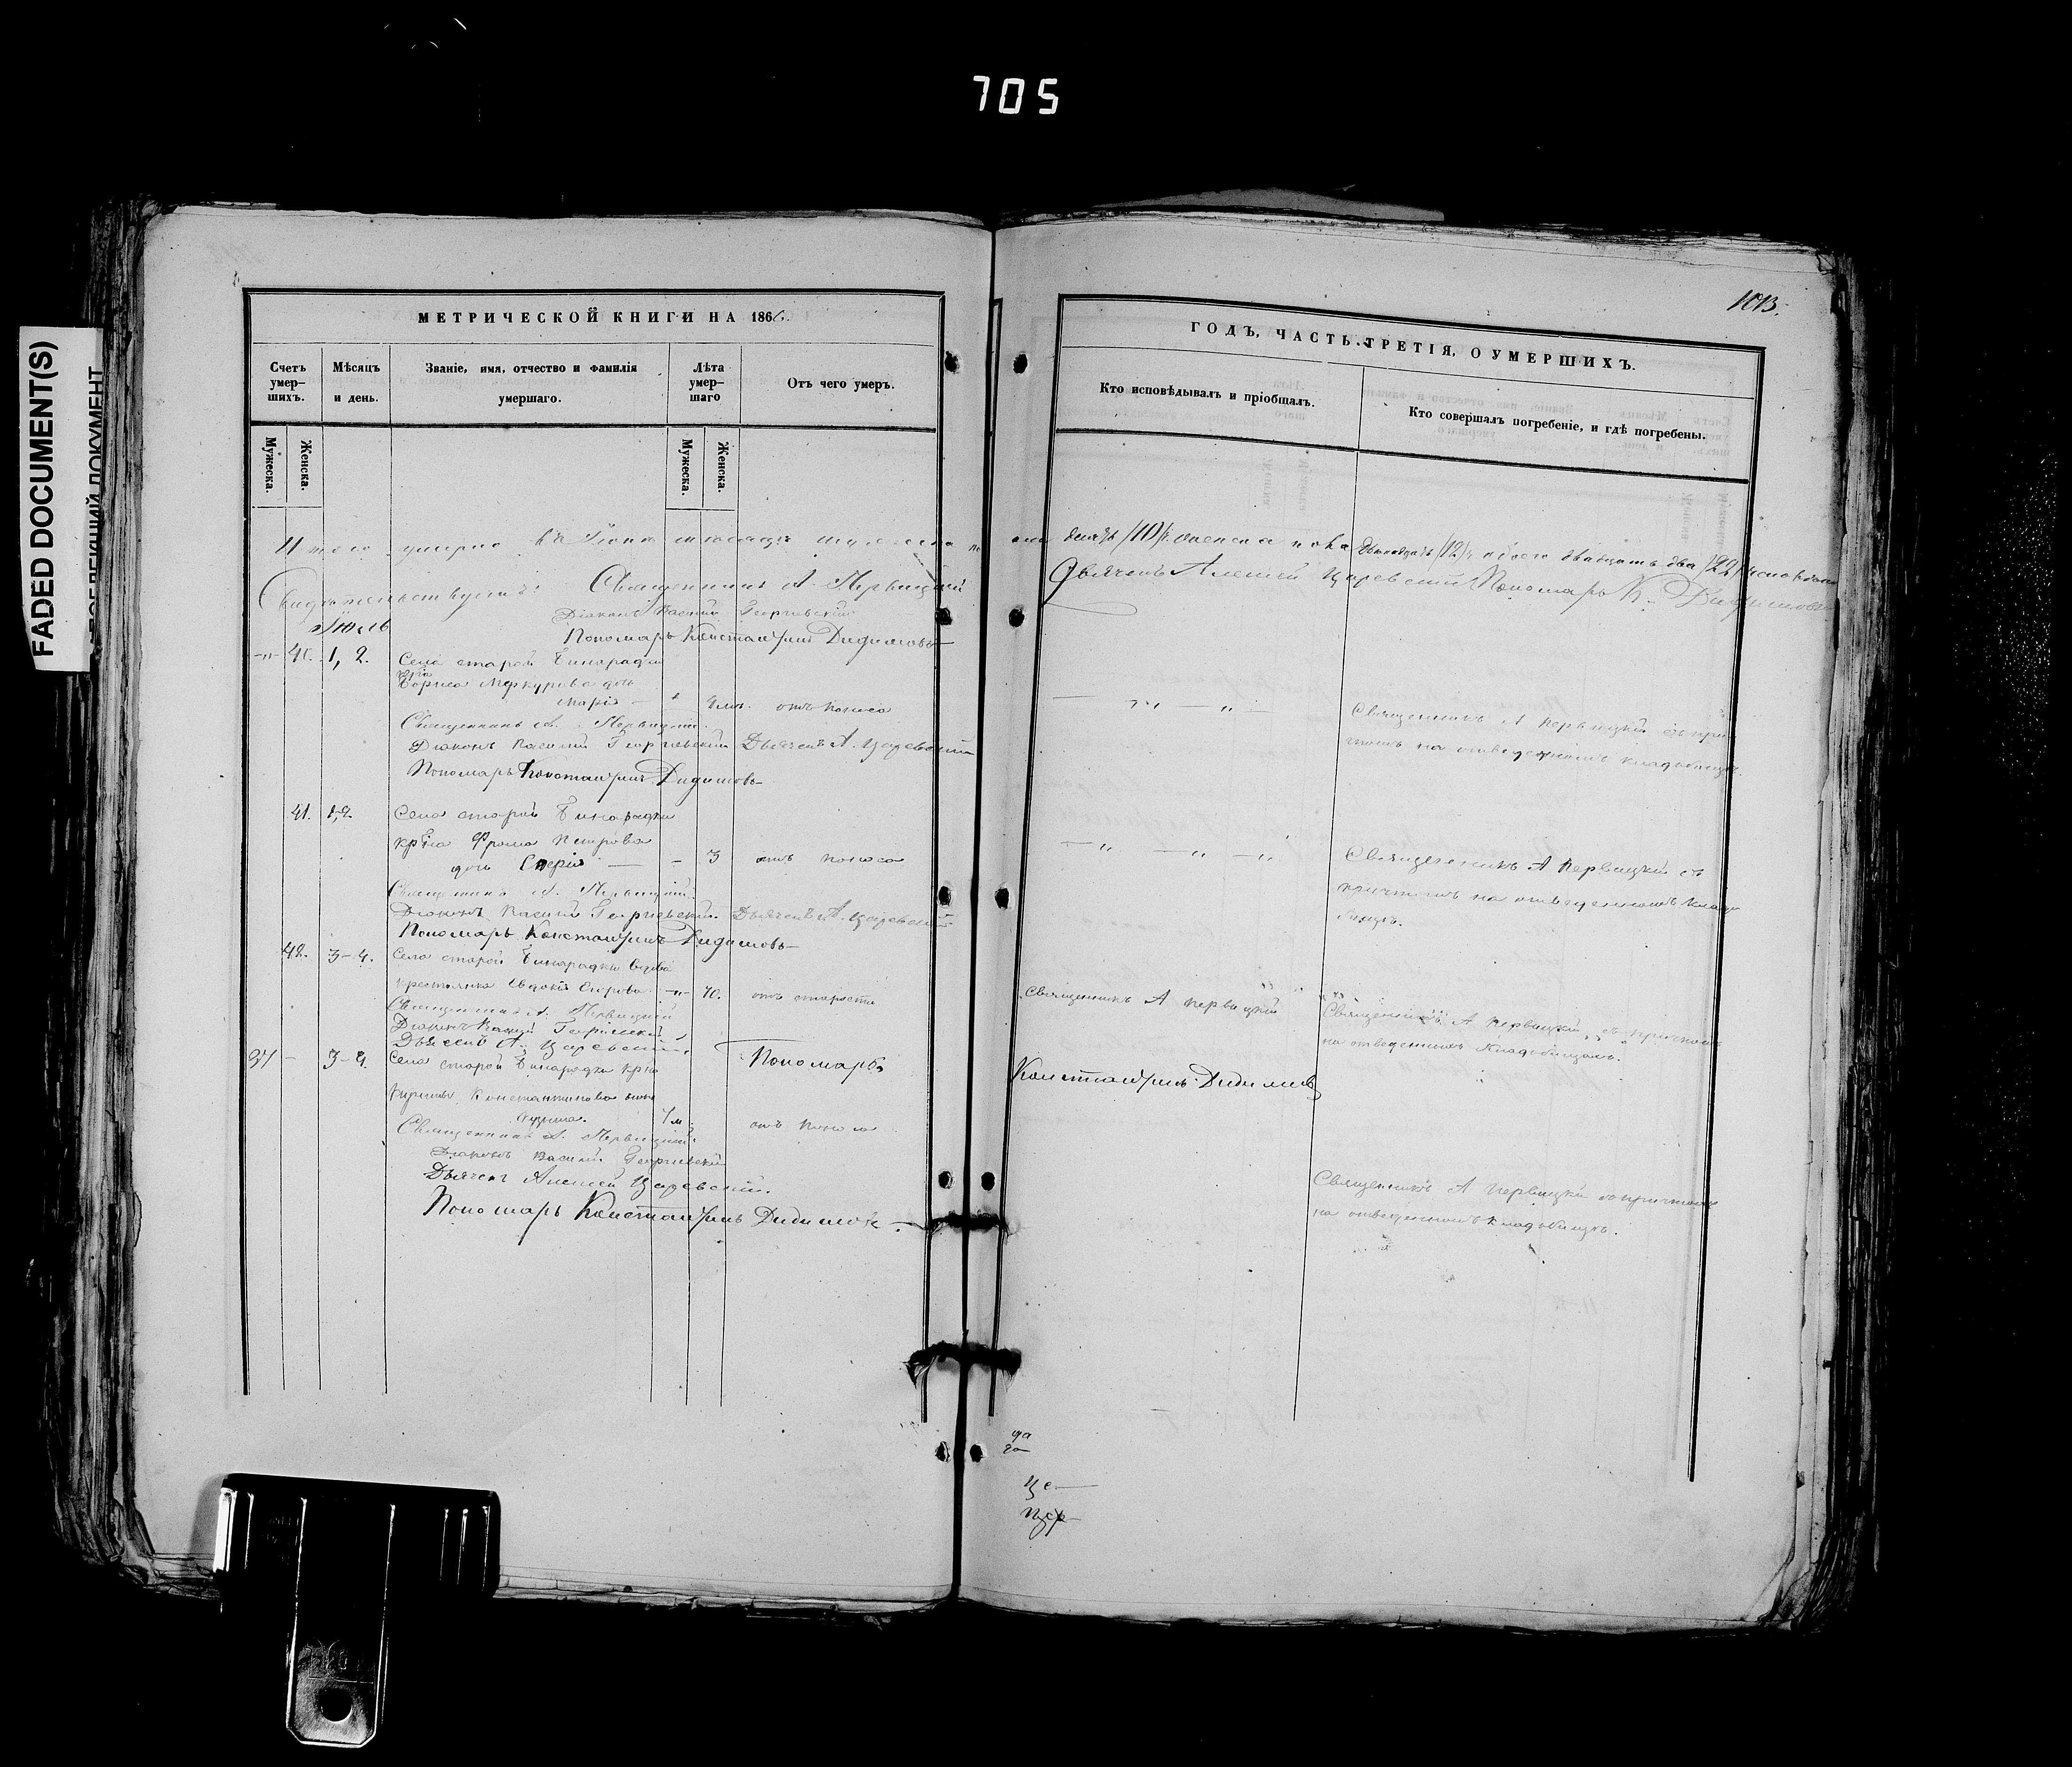 705
FADED DOCUMENT(S)
1013.
МЕТРИЧЕСКОЙ КНИГИ НА 1866.
ГОДЪ, ЧАСТЬ ТРЕТІЯ, О УМЕРШИХЪ.
Счетъ умер-шихъ.
Мѣсяцъ и день.
Званіе, имя, отчество и фамилія умершаго.
Лѣта умер-шаго
Отъ чего умеръ.
Кто исповѣдывалъ и пріобщалъ.
Кто совершалъ погребеніе, и гдѣ погребены.
Мужеска.
Женска.
Мужеска.
Женска.
Итого умерло въ Іюнѣ мѣсяцѣ мужеска по
ла десять /10/ женска пола двѣнадцать /12/ обоего двадцать два /22/
Свидѣтельствуютъ: Священникъ А. Первицкій
Дьячекъ Алексей Царевскій Пономарь К. Дидимовъ
Діаконъ Василій Георгіевскій
Пономарь Константинъ Дидимовъ
Іюль
40. 1, 2. Села старой Бинарадки
крна
Бориса Меркурова дочь
Марія отъ поноса
Священникъ А Первицкій съ при
чтомъ на отведенномъ кладбищѣ.
Священникъ А. Первицкій.
Діаконъ Василій Георгіевскій Дьячекъ А. Царевскій
Пономарь Константинъ Дидимовъ
41. 1, 2. Села старой Бинарадки
крна Фрола Петрова
дочь 3 отъ поноса
Священникъ А Первицкій съ
причтомъ на отведенномъ клад
бищѣ.
Священникъ А. Первицкій
Діаконъ Василій Георгіевскій. Дьячекъ А. Царевскій
Пономарь Константинъ Дидимовъ
42. 3-4. Села старой Бинарадки вдова
крестьянка Евдокія Егорова 70. отъ старости
Священникъ А Первицкій
Священникъ А Первицкій съ причтомъ
на отведенномъ кладбищѣ.
Священникъ А. Первицкій
Діаконъ Василій Георгіевскій
Дьячекъ А. Царевскій. Пономарь Константинъ Дидимовъ
37 3-4. Села старой Бинарадки крна
Константинова сынъ
отъ поноса
Священникъ А. Первицкій.
Діаконъ Василій Георгіевскій
Дьячекъ Алексей Царевскій.
Пономарь Константинъ Дидимовъ
Священникъ А Первицкій съ причтомъ
на отведенномъ кладбищѣ.